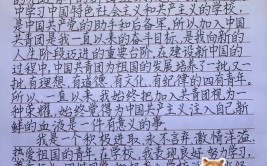 中学习中国特色社会主义和共产主义的学校,
是中国共产党的助手和后备军,所以加入中国
共青团是我一直以来的奋斗目标,是我向新的
人生阶段迈进的重要台阶。在建设新中国的
过程中,中国共青团为祖国的发展培养了一批又一
批有理想、有道德、有文化、有纪律的四有青年。
所以一直以来,我始终把加入共青团视为一
种荣耀,始终觉得为中国共产主义注入自己新
鲜的血液是一件有意义的事。
我是一个积极进取,永不言弃,激情洋溢
热爱祖国的青年。在学校,我表现良好,努力学习,